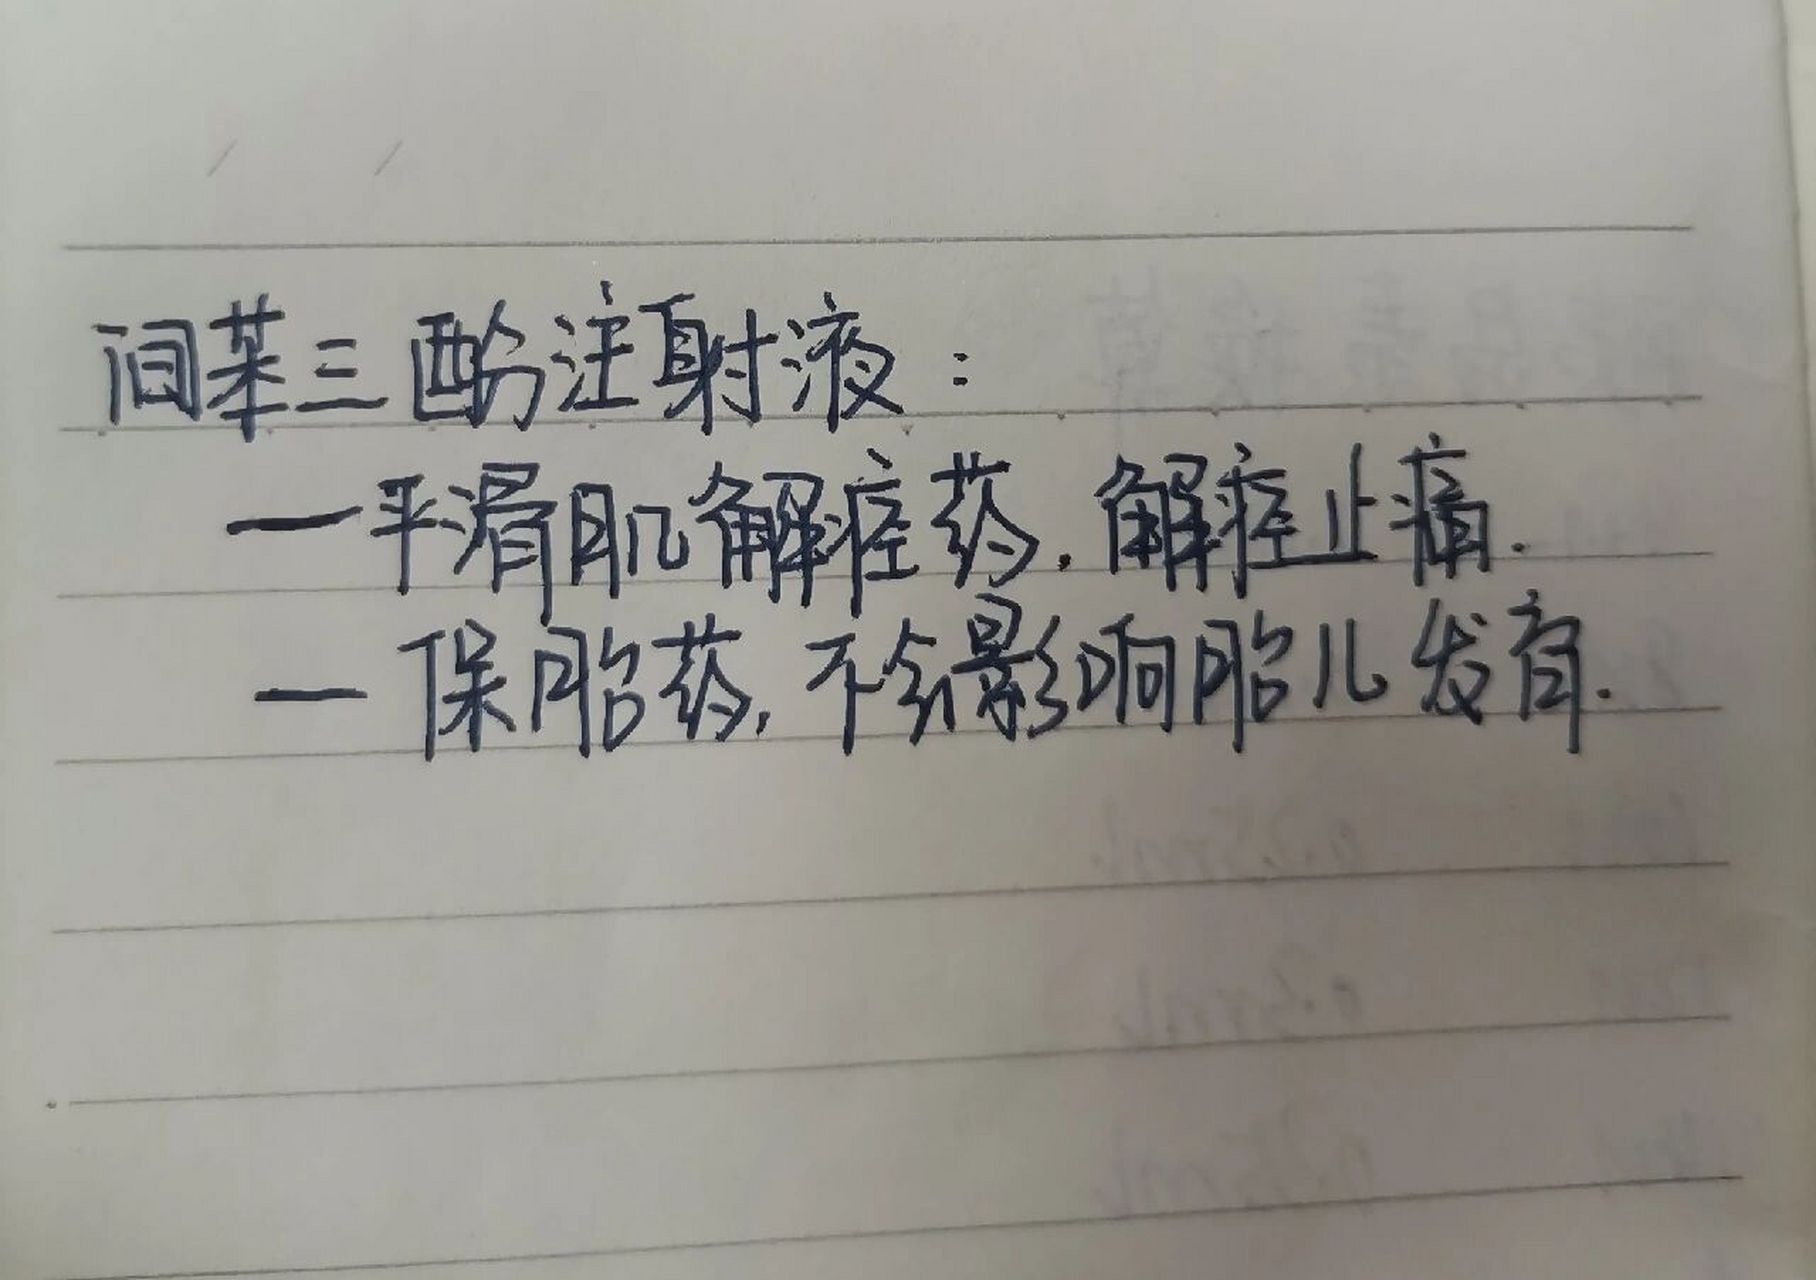 间苯三酚注射液：
一平滑肌解痉药.解痉止痛.
一保胎药,不会影响胎儿发育.
0.25ml